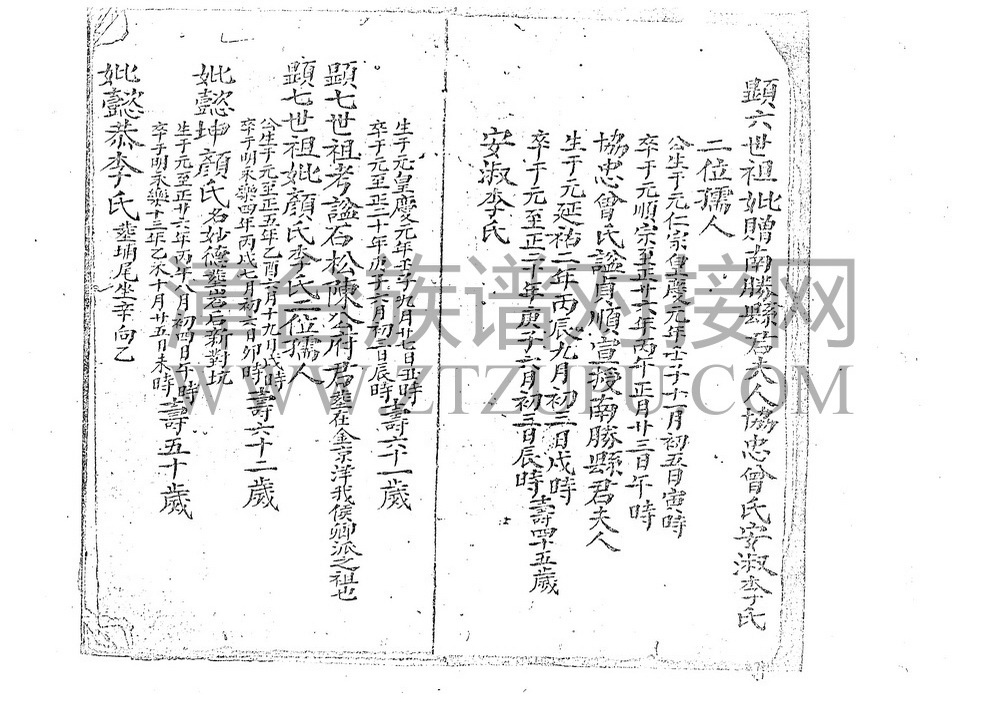 顯六世祖妣贈南勝縣君夫人協忠曾氏安淑李氏
二位孺人
公生于元仁宗皇慶元年壬子十一月初五日寅時
卒于元順宗至正廿六年丙午正月廿三日午時
協忠曾氏諡貞順宣授南勝縣君夫人
生于元延祐二年丙辰九月初三日戌時
卒于元至正二十年庚子六月初三日辰時壽四十五歲
安淑李氏
生于元皇慶元年壬子九月廿七日丑時
卒于元至正二十年庚子六月初三日辰時壽六十一歲
顯七世祖考諡石松陳公府君葬在金京洋我侯卿派之祖也
顯七世祖妣顏氏李氏二位孺人
公生于元至正五年乙酉六月十九日戌時
卒于明永樂四年丙戌七月初六日卯時壽六十二歲
妣懿坤顏氏名妙德葬岩后新對坑
生于元至正廿六年丙午八月初四日午時
卒于明永樂十三年乙未十月廿五日未時壽五十歲
妣懿恭李氏葬埔尾坐辛向乙
漳台族谱对接网
WWW.ZTZUPU.COM